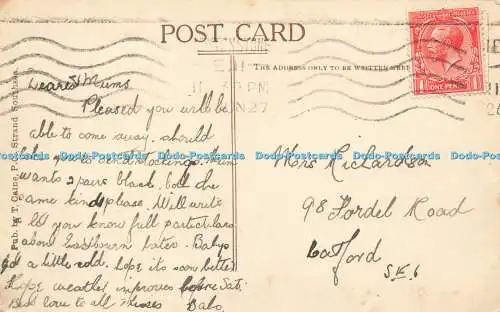 POST CARD
THE ADDRESS ONLY TO BE WRITTEN HERE
ONE PENNY
Pub. by T. Caine, P. O. Strand
Dearest Mums
Pleased you will be
able to come away. should
like and stockings. Mum
wants 2 pairs black. both the
same kind please. Will write
& let you know full particulars
about Eastbourn later. Babys
got a little cold. hope its soon better
Hope weather improves before Sat.
Best love to all Kisses Babs.
Mrs Richardson
98 Fordel Road
Catford
S.E.6
Dodo-Postcards Dodo-Postcards Dodo-Postcards Dodo-Postcards Dodo-Postcards Dodo-Postcards